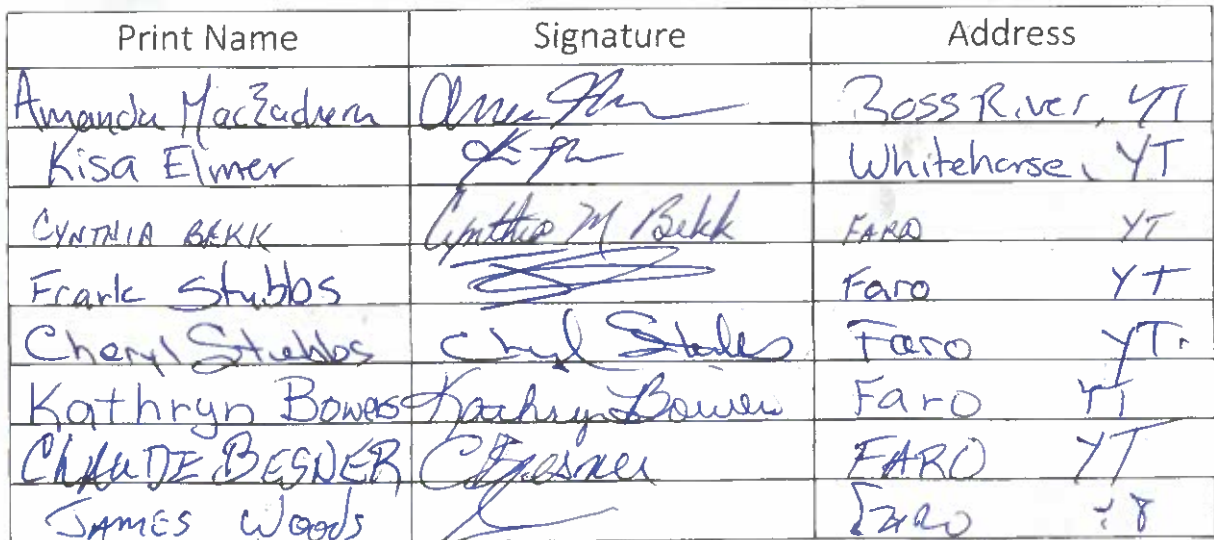 Print Name Signature Address
Amanda Ross River, YT
Kisa Elmer Whitehorse, YT
CYNTHIA BEKK Cynthia M Bekk FARO YT
Frank Stubbs Faro YT
Cheryl Stubbs Cheryl Stubbs Faro YT.
Kathryn Bowers Kathryn Bowers Faro YT
CLAUDE BESNER C Besner FARO YT
JAMES Woods FARO